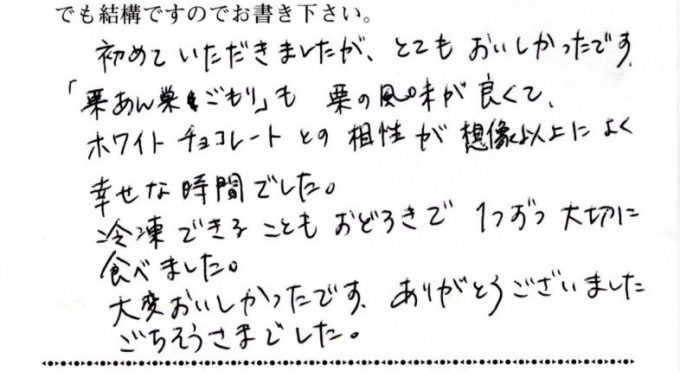 でも結構ですのでお書き下さい。
初めていただきましたが、とてもおいしかったです。
「栗あん巣ごもり」も 栗の風味が良くて、
ホワイトチョコレートとの相性が想像以上によく
幸せな時間でした。
冷凍できることもおどろきで 1つずつ大切に
食べました。
大変おいしかったです。ありがとうございました
ごちそうさまでした。